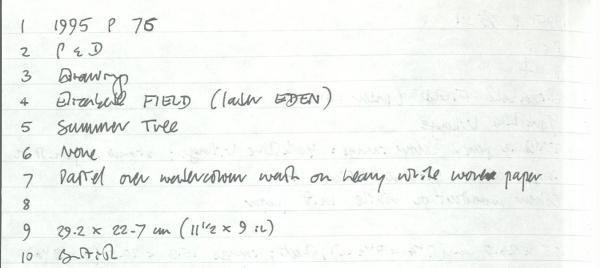 1 1995 P 76
2 P & D
3 Drawings
4 Elizabeth FIELD (later EDEN)
5 Summer Tree
6 None
7 Pastel over watercolour wash on heavy white wove paper
8
9 29.2 x 22.7 cm (11 1/2 x 9 in)
10 British